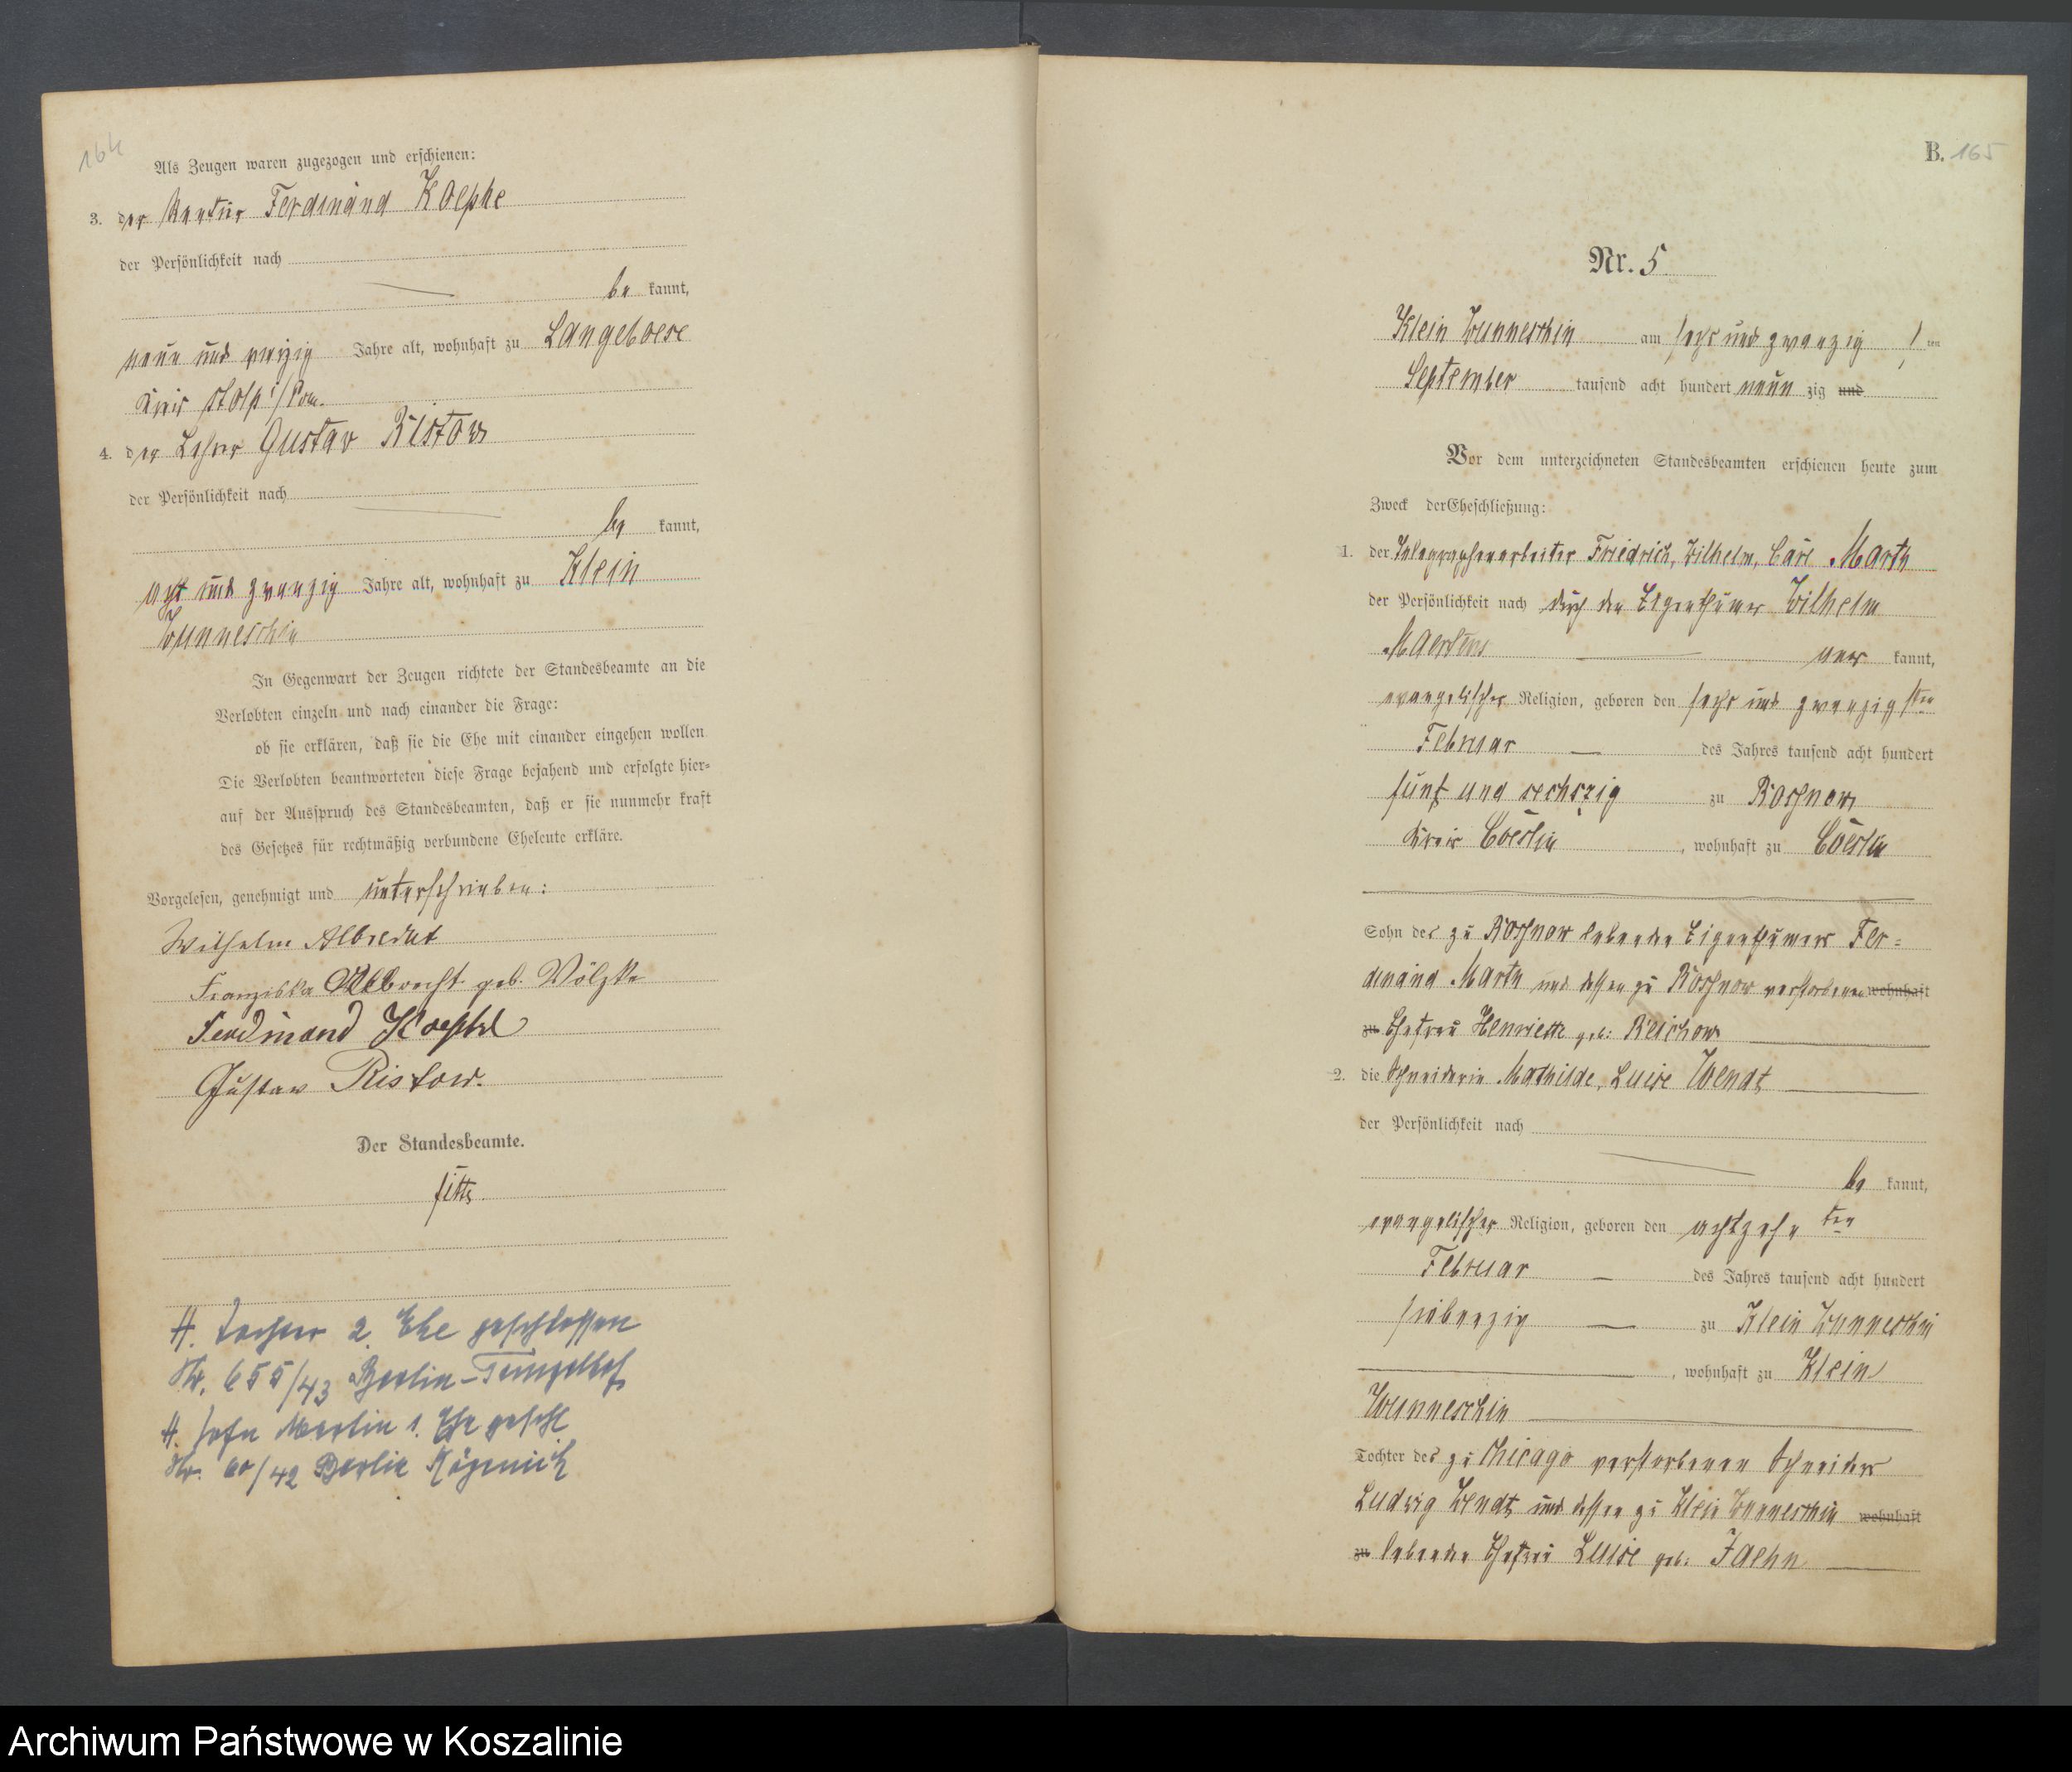 164
Als Zeugen waren zugezogen und erschienen:
3. der Rentier Ferdinand Koepke
der Persönlichkeit nach
be kannt,
neun und vierzig Jahre alt, wohnhaft zu Langeboese
Kreis Stolp i/Pom.
4. der Lehrer Gustav Ristow
der Persönlichkeit nach
be kannt,
acht und zwanzig Jahre alt, wohnhaft zu Klein
Wunneschin
In Gegenwart der Zeugen richtete der Standesbeamte an die
Verlobten einzeln und nach einander die Frage:
ob sie erklären, daß sie die Ehe mit einander eingehen wollen
Die Verlobten beantworteten diese Frage bejahend und erfolgte hier=
auf der Ausspruch des Standesbeamten, daß er sie nunmehr kraft
des Gesetzes für rechtmäßig verbundene Eheleute erkläre.
Vorgelesen, genehmigt und unterschrieben:
Wilhelm Albrecht
Franziska Albrecht geb. Völzke
Ferdinand Koepke
Gustav Ristow.
Der Standesbeamte.
H. Tochter 2. Ehe geschlossen
Nr. 655/43 Berlin-Tempelhof
H. Sohn Martin 1. Ehe geschl.
Nr. 60/42 Berlin Köpenick
B. 165
Nr. 5
Klein Wunneschin am sechs und zwanzig sten
September tausend acht hundert neun zig und
Vor dem unterzeichneten Standesbeamten erschienen heute zum
Zweck der Eheschließung:
1. der Telegraphenarbeiter Friedrich, Wilhelm, Carl Marth
der Persönlichkeit nach durch den Eigenthümer Wilhelm
Maertens aner kannt,
evangelischer Religion, geboren den sechs und zwanzig sten
Februar des Jahres tausend acht hundert
fünf und sechszig zu Roßnow
Kreis Coeslin, wohnhaft zu Coeslin
Sohn des zu Roßnow lebenden Eigenthümers Fer=
dinand Marth und dessen zu Roßnow verstorbenen wohnhaft
zu Ehefrau Henriette geb: Reichow
2. die Schneiderin Mathilde, Luise Wendt
der Persönlichkeit nach
be kannt,
evangelischer Religion, geboren den achtzehn ten
Februar des Jahres tausend acht hundert
siebenzig zu Klein Wunneschin
, wohnhaft zu Klein
Wunneschin
Tochter des zu Chicago verstorbenen Schneiders
Ludwig Wendt und dessen zu Klein Wunneschin wohnhaft
zu lebenden Ehefrau Luise geb: Jaehn
Archiwum Państwowe w Koszalinie